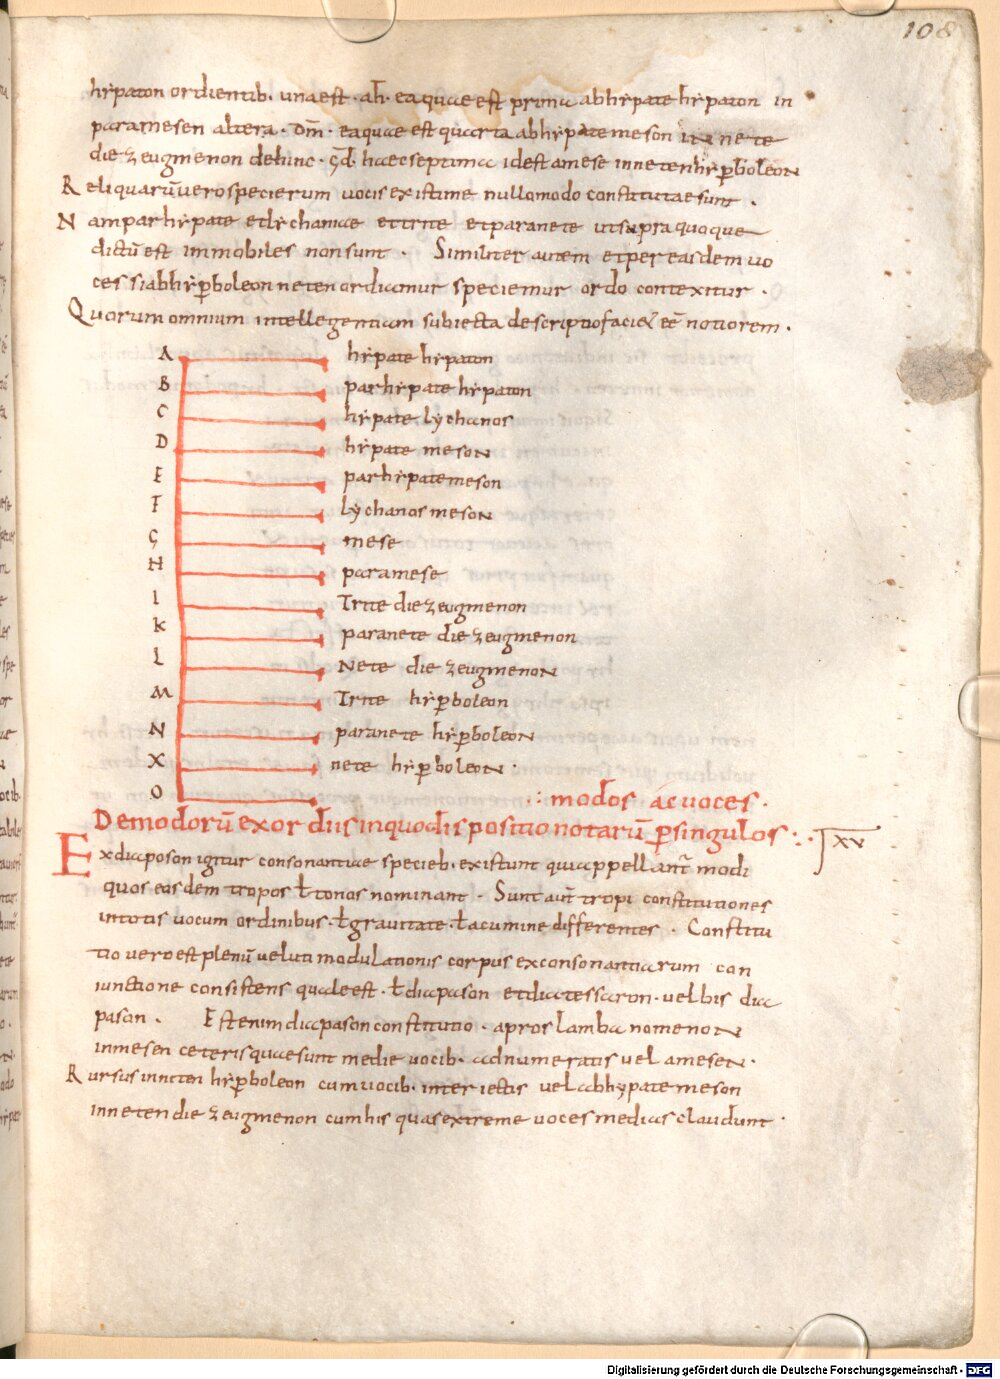 108
hẏpaton ordientib· una est · ah · ea quae est prima ab hẏpate hẏpaton in
paramesen altera · dm̄ · ea quae est quarta ab hẏpate meson in nete
diezeugmenon dehinc · gd̄ · haec septima id est a mese in neten hẏꝑboleon
Reliquarū vero specierum voces existime nullo modo constitutae sunt ·
Nam parhẏpate et lẏchanae et trite et paranete ut supra quoque
dictū est immobiles non sunt · Similiter autem et per easdem vo
ces si ab hẏꝑboleon neten ordiamur speciemur ordo contexitur ·
Quorum omnium intellegentiam subiecta descriptio faci& eē notiorem ·
A hẏpate hẏpaton
B parhẏpate hẏpaton
C hẏpate lẏchanos
D hẏpate meson
E parhẏpate meson
F lẏchanos meson
G mese
H paramese
I Trite diezeugmenon
K paranete diezeugmenon
L Nete diezeugmenon
M Trite hẏꝑboleon
N paranete hẏꝑboleon
X nete hẏꝑboleon ·
O
∴ modos ac voces ·
De modorū exordiis in quo dispositio notarū ꝑ singulos :· XV
Ex diapason igitur consonantiae specieb· existunt qui appellant̄ modi
quos easdem tropos ł tonos nominant · Sunt aut̄ tropi constitutiones
in totis vocum ordinibus · ł gravitate · ł acumine differentes · Constitu
tio vero est plenū veluti modulationis corpus ex consonantiarum con
iunctione consistens quale est · ł diapason et diatessaron · vel bis dia
pason · Est enim diapason constitutio · a proslambanomenon
in mesen ceteris quae sunt medie vocib· adnumeratis vel a mesen ·
Rursus in neten hẏꝑboleon cum vocib· interiectis vel ab hẏpate meson
in neten diezeugmenon cum his quas extreme voces medias claudunt ·
Digitalisierung gefördert durch die Deutsche Forschungsgemeinschaft - DFG